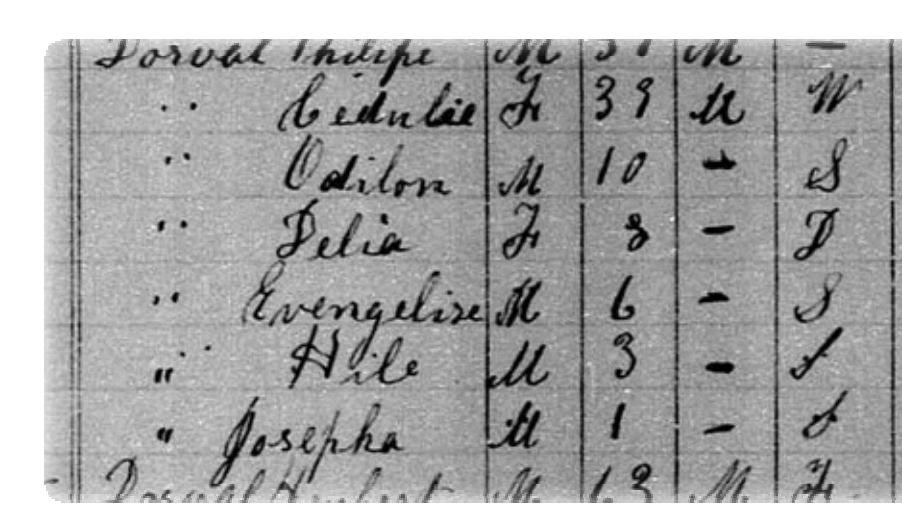 Dorval Philipe M 3 M —
" Cedulie F 39 M W
" Odilon M 10 - S
" Delia F 8 - D
" Evengelise M 6 - S
" Hile M 3 - S
" Josepha M 1 - S
Dorval M 63 M F